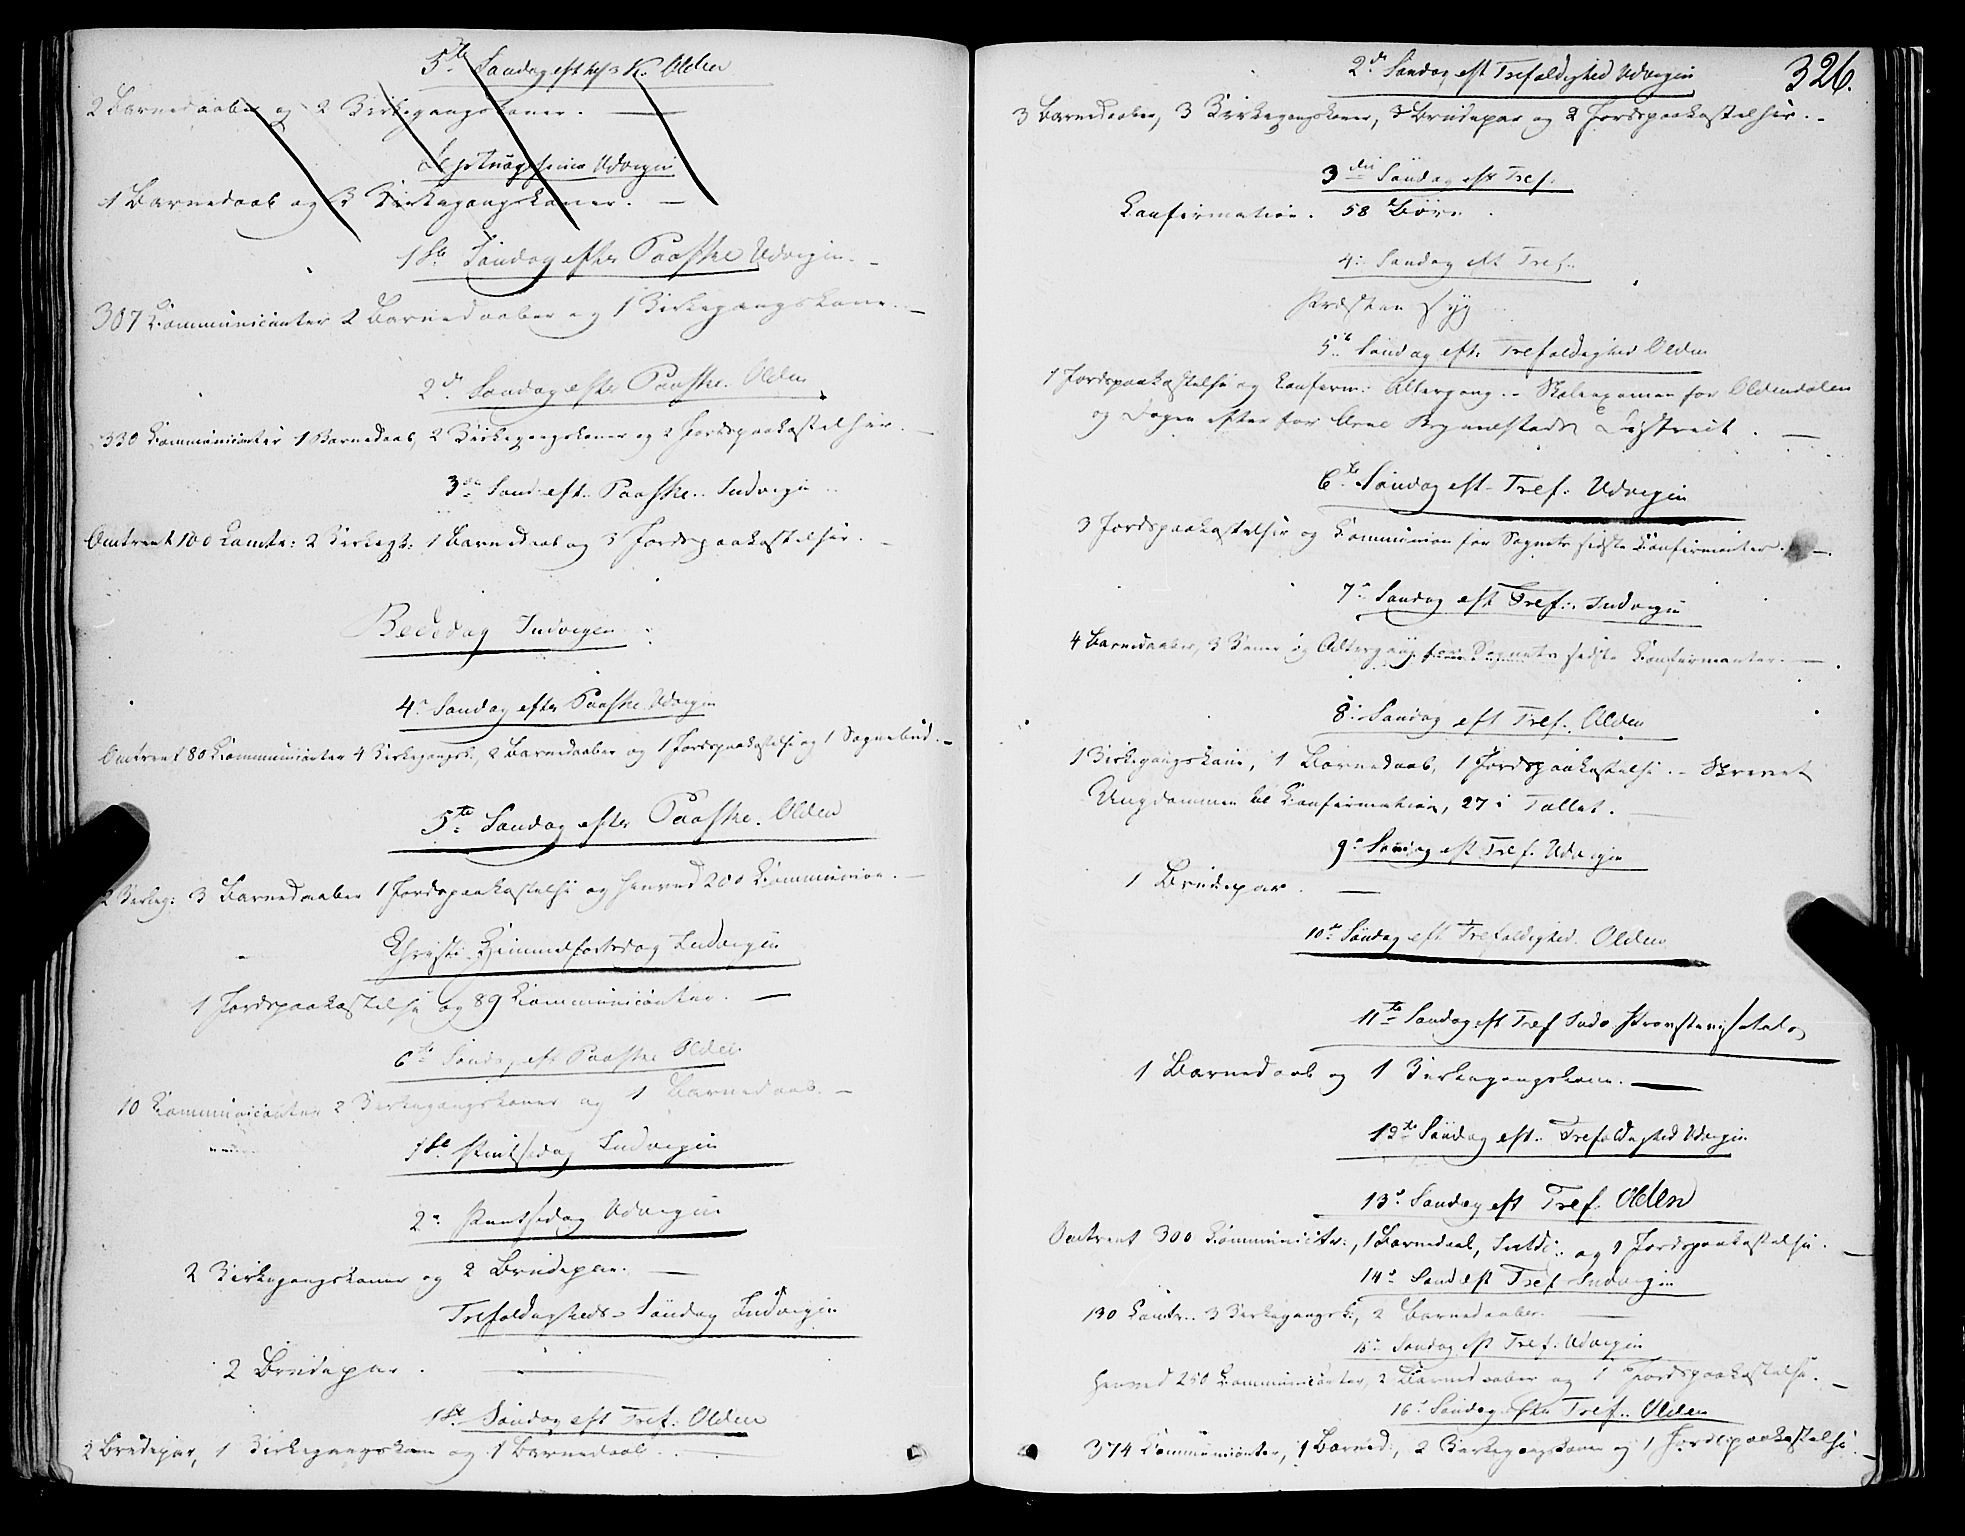 5te Søndag eft h: 3 K. Olden
2 Barnedaaber og 2 Kirkegangskoner.
Septuagesima Udvigen
1 Barnedaab og 3 Kirkegangskoner.
1ste Søndag efter Paaske Udvigen.
307 Communicanter 2 Barnedaaber og 1 Kirkegangskone.
2den Søndag efter Paaske. Olden
330 Communicanter 1 Barnedaab, 2 Kirkegangskoner og 2 Jordspaakastelser.
3die Sønd: eft. Paaske. Indvigen
Omtrent 100 Comte: 2 Kirkegk: 1 Barnedaab og 3 Jordspaakastelser.
Bededag Indvigen
4: Søndag efter Paaske Udvigen
Omtrent 80 Communicanter 4 Kirkegangsk:, 2 Barnedaaber og 1 Jordspaakastelse og 1 Sognebud.
5te Søndag efter Paaske. Olden
2 Kirkeg: 3 Barnedaaber 1 Jordspaakastelse og henved 200 Communion.
Christi Himmelfartsdag Indvigen
1 Jordspaakastelse og 89 Communicanter.
6te Søndag eft Paaske Olden
10 Communicanter 2 Kirkegangskoner og 1 Barnedaab.
1ste Pintsedag Indvigen
2: Pintsedag Udvigen
2 Kirkegangskoner og 2 Brudepar.
Trefoldigheds-Søndag Indvigen
2 Brudepar.
1ste Søndag eft Tref: Olden
2 Brudepar, 1 Kirkegangskone og 1 Barnedaab.
326.
2den Søndag eft Trefoldighed Udvigen
3 Barnedaaber, 3 Kirkegangskoner, 3 Brudepar og 2 Jordspaakastelser.
3die Søndag eft Tref.
Confirmation. 58 Børn.
4: Søndag eft Tref.
Præsten syg
5te Søndag eft. Trefoldighed Olden
1 Jordspaakastelse og Confirm: Altergang. Skoleexamen for Oldendalen
og Dagen efter for District.
6te Søndag eft Tref: Udvigen
3 Jordspaakastelser og Communion for Sognets sidste Confirmanter.
7: Søndag eft Tref: Indvigen
4 Barnedaaber, 3 Koner og Altergang for Sognets sidste Confirmanter.
8: Søndag eft Tref. Olden
1 Kirkegangskone, 1 Barnedaab, 1 Jordspaakastelse. Skrevet
Ungdommen til Confirmation, 27 i Tallet.
9: Søndag eft Tref. Udvigen
1 Brudepar.
10de Søndag eft Trefoldighed. Olden
11te Søndag eft Tref Indv Provstevisitats
1 Barnedaab og 1 Kirkegangskone.
12te Søndag eft. Trefoldighed Udvigen
13: Søndag eft Tref. Olden
Omtrent 300 Communicter:, 1 Barnedaab, og 1 Jordspaakastelse.
14: Sønd eft Tref Indvigen
130 Comtr. 3 Kirkegangsk:, 2 Barnedaaber.
15: Søndag eft Tref. Udvigen
henved 250 Communicanter, 2 Barnedaaber og 1 Jordspaakastelse.
16: Søndag efter Tref. Olden
374 Communicanter, 1 Barned:, 2 Kirkegangskoner og 1 Jordspaakastelse.